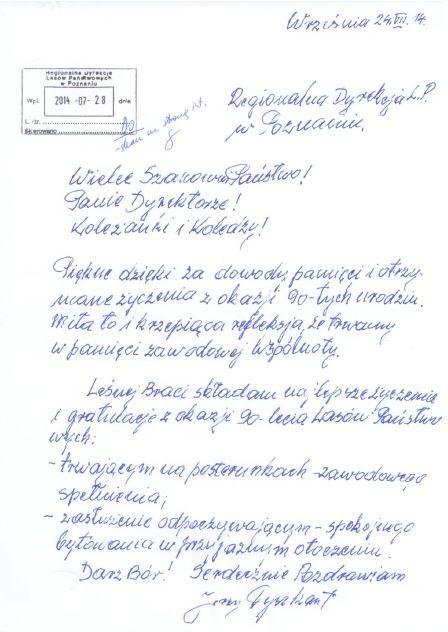 Września 24.VII.14.
Regionalna Dyrekcja
Lasów Państwowych
w Poznaniu
Wpł. 2014 -07- 28 dnia
L. dz.
Skierowano
Regionalna Dyrekcja L.P.
w Poznaniu.
Wielce Szanowni Państwo!
Panie Dyrektorze!
Koleżanki i Koledzy!
Piękne dzięki za dowody pamięci i otrzy-
mane życzenia z okazji 90-tych urodzin.
Miła to i krzepiąca refleksja, że trwamy
w pamięci zawodowej wspólnoty.
Leśnej Braci składam najlepsze życzenia
i gratulacje z okazji 90-lecia Lasów Państwo
wych:
- trwającym na posterunkach - zawodowego
spełnienia;
- zasłużenie odpoczywającym - spokojnego
bytowania w przyjaznym otoczeniu.
Darz Bór! Serdecznie Pozdrawiam
Jerzy